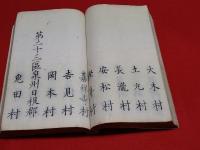 大木村
土丸村
長瀧村
安松村
岡本村
吉見村
第二十三區泉州日根郡
兎田村